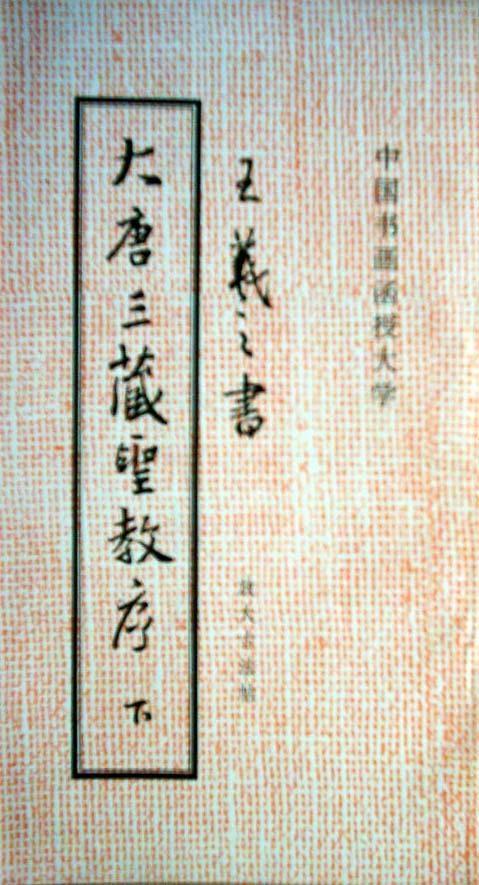 中国书画函授大学
王羲之書
放大古法帖
大唐三藏聖教序 下